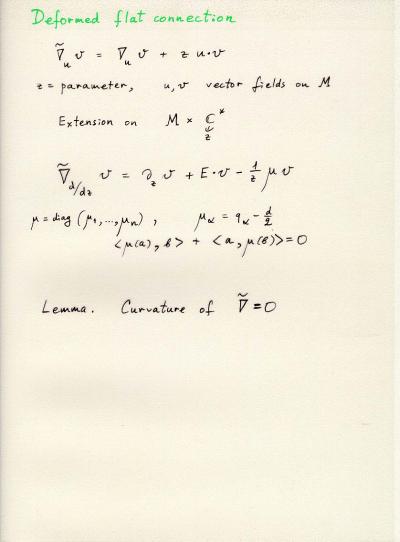 Deformed flat connection
∇̃_u v = ∇_u v + z u·v
z = parameter, u, v vector fields on M
Extension on M × ℂ*
∈
z
∇̃_{d/dz} v = ∂_z v + E·v − 1/z μ v
μ = diag (μ₁, ..., μ_n), μ_α = q_α − d/2
<μ(a), b> + <a, μ(b)> = 0
Lemma. Curvature of ∇̃ = 0